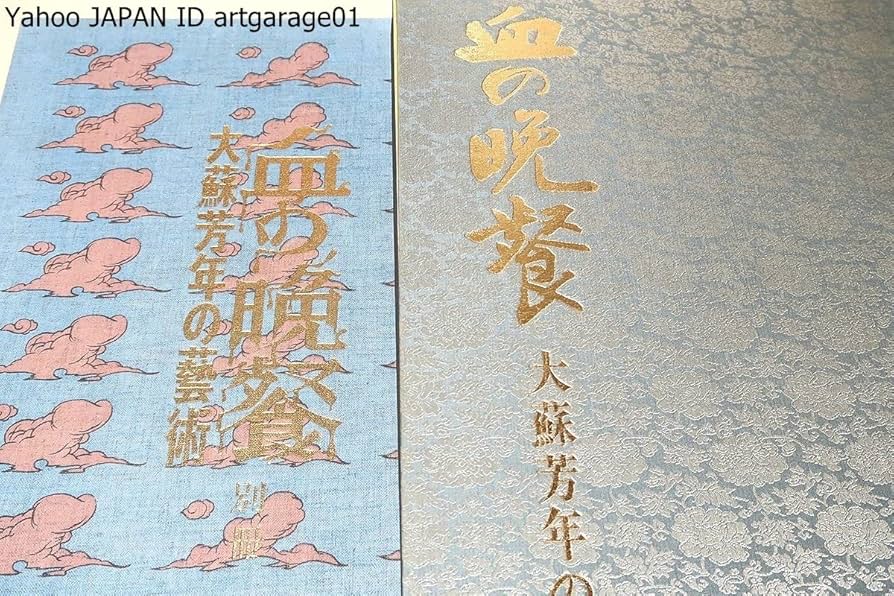 Yahoo JAPAN ID artgarage01
血の晩餐
大蘇芳年の藝術
別冊
血の晩餐
大蘇芳年の